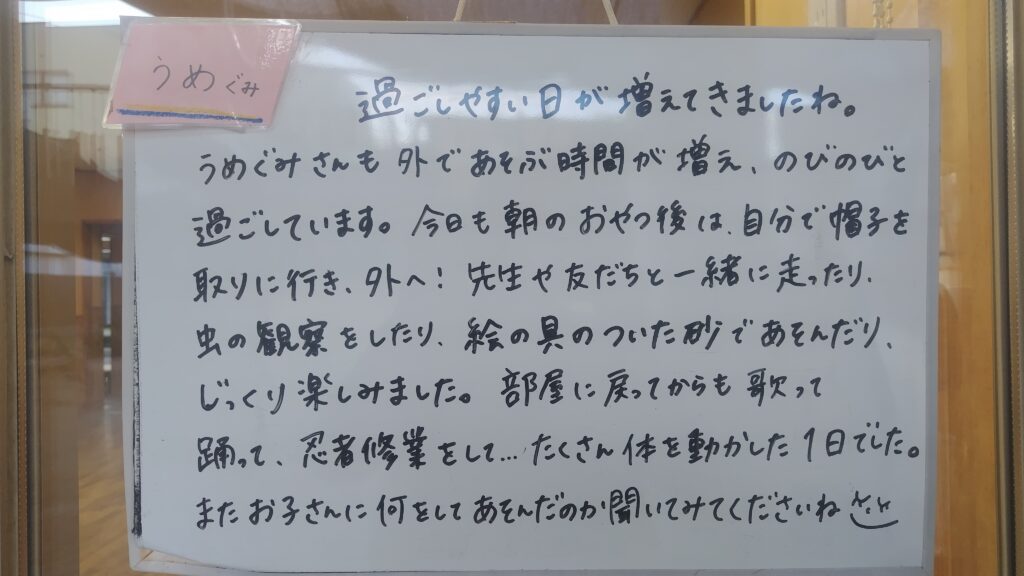 うめぐみ
過ごしやすい日が増えてきましたね。
うめぐみさんも外であそぶ時間が増え、のびのびと
過ごしています。今日も朝のおやつ後は、自分で帽子を
取りに行き、外へ！先生や友だちと一緒に走ったり、
虫の観察をしたり、絵の具のついた砂であそんだり、
じっくり楽しみました。部屋に戻ってからも歌って
踊って、忍者修業をして…たくさん体を動かした1日でした。
またお子さんに何をしてあそんだのか聞いてみてくださいね